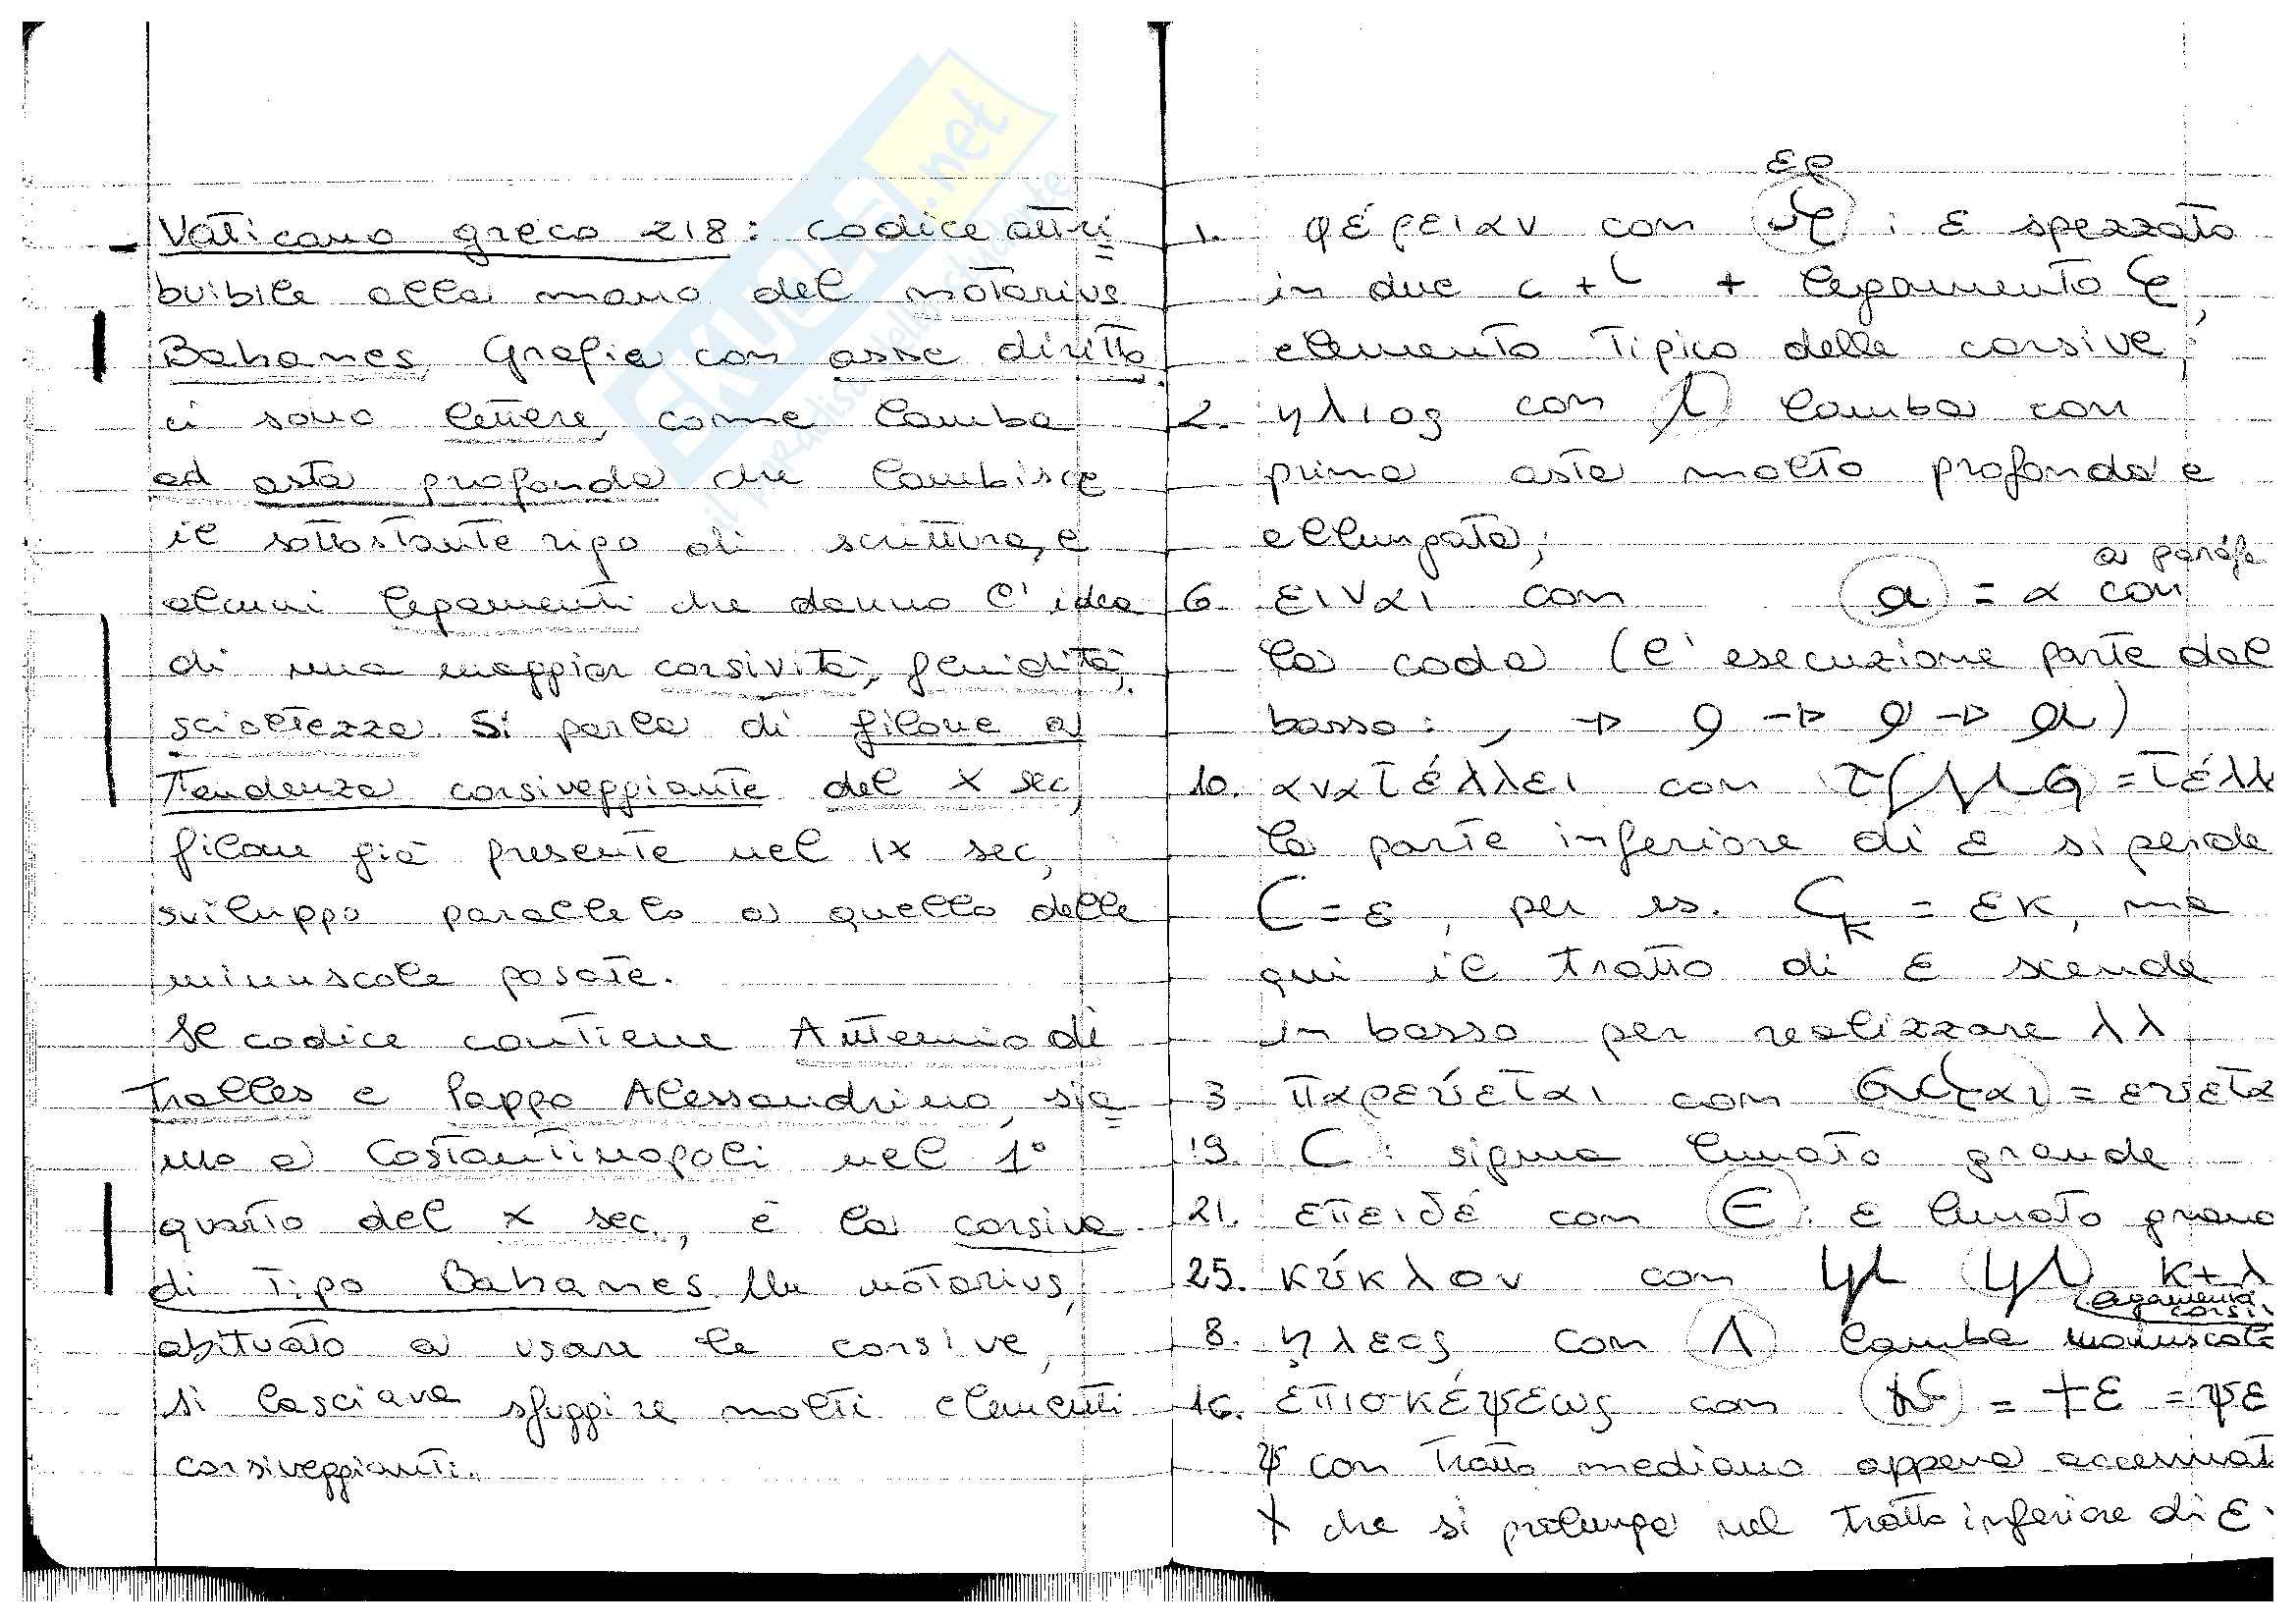 Vaticano greco 218: codice attri
buibile alla mano del notarius
Bahanes. Grafia con asse diritto
ci sono lettere, come lamba
ad asta profonda che lambisce
il sottostante rigo di scrittura, e
alcuni legamenti che danno l'idea
di una maggior corsività, fluidità,
scioltezza. Si parla di filone a
tendenza corsiveggiante del X sec,
filone già presente nel IX sec,
sviluppo parallelo a quello delle
minuscole posate.
Il codice contiene Antemio di
Tralles e Pappo Alessandrino, sia
mo a Costantinopoli nel 1°
quarto del X sec., è la corsiva
di tipo Bahanes. Un notarius,
abituato a usare le corsive,
si lasciava sfuggire molti elementi
corsiveggianti.
ερ
1. φέρειαν con : ε spezzato
in due c + + legamento
elemento tipico delle corsive;
2. ηλιος con λ lamba con
prima asta molto profonda e
allungata;
a
6. ειναι con a = α con
la coda (l'esecuzione parte dal
basso: , → → → a)
10. ανατέλλει con = τέλλ
la parte inferiore di ε si perde
C = ε, per es. Cκ = εκ, ma
qui il tratto di ε scende
in basso per realizzare λλ
3. παρεύεται con = ευετα
19. C: sigma lunato grande
21. επειδέ con Є: ε lunato gran
25. κύκλον con κ+λ
legamento
corsi
8. ηλεος con Λ lamba maiuscola
16. επισκέψεως con = +ε = ψε
ψ con tratto mediano appena accennat
+ che si prolunga nel tratto inferiore di ε.
SKUOLA.net
il paradiso dello studente